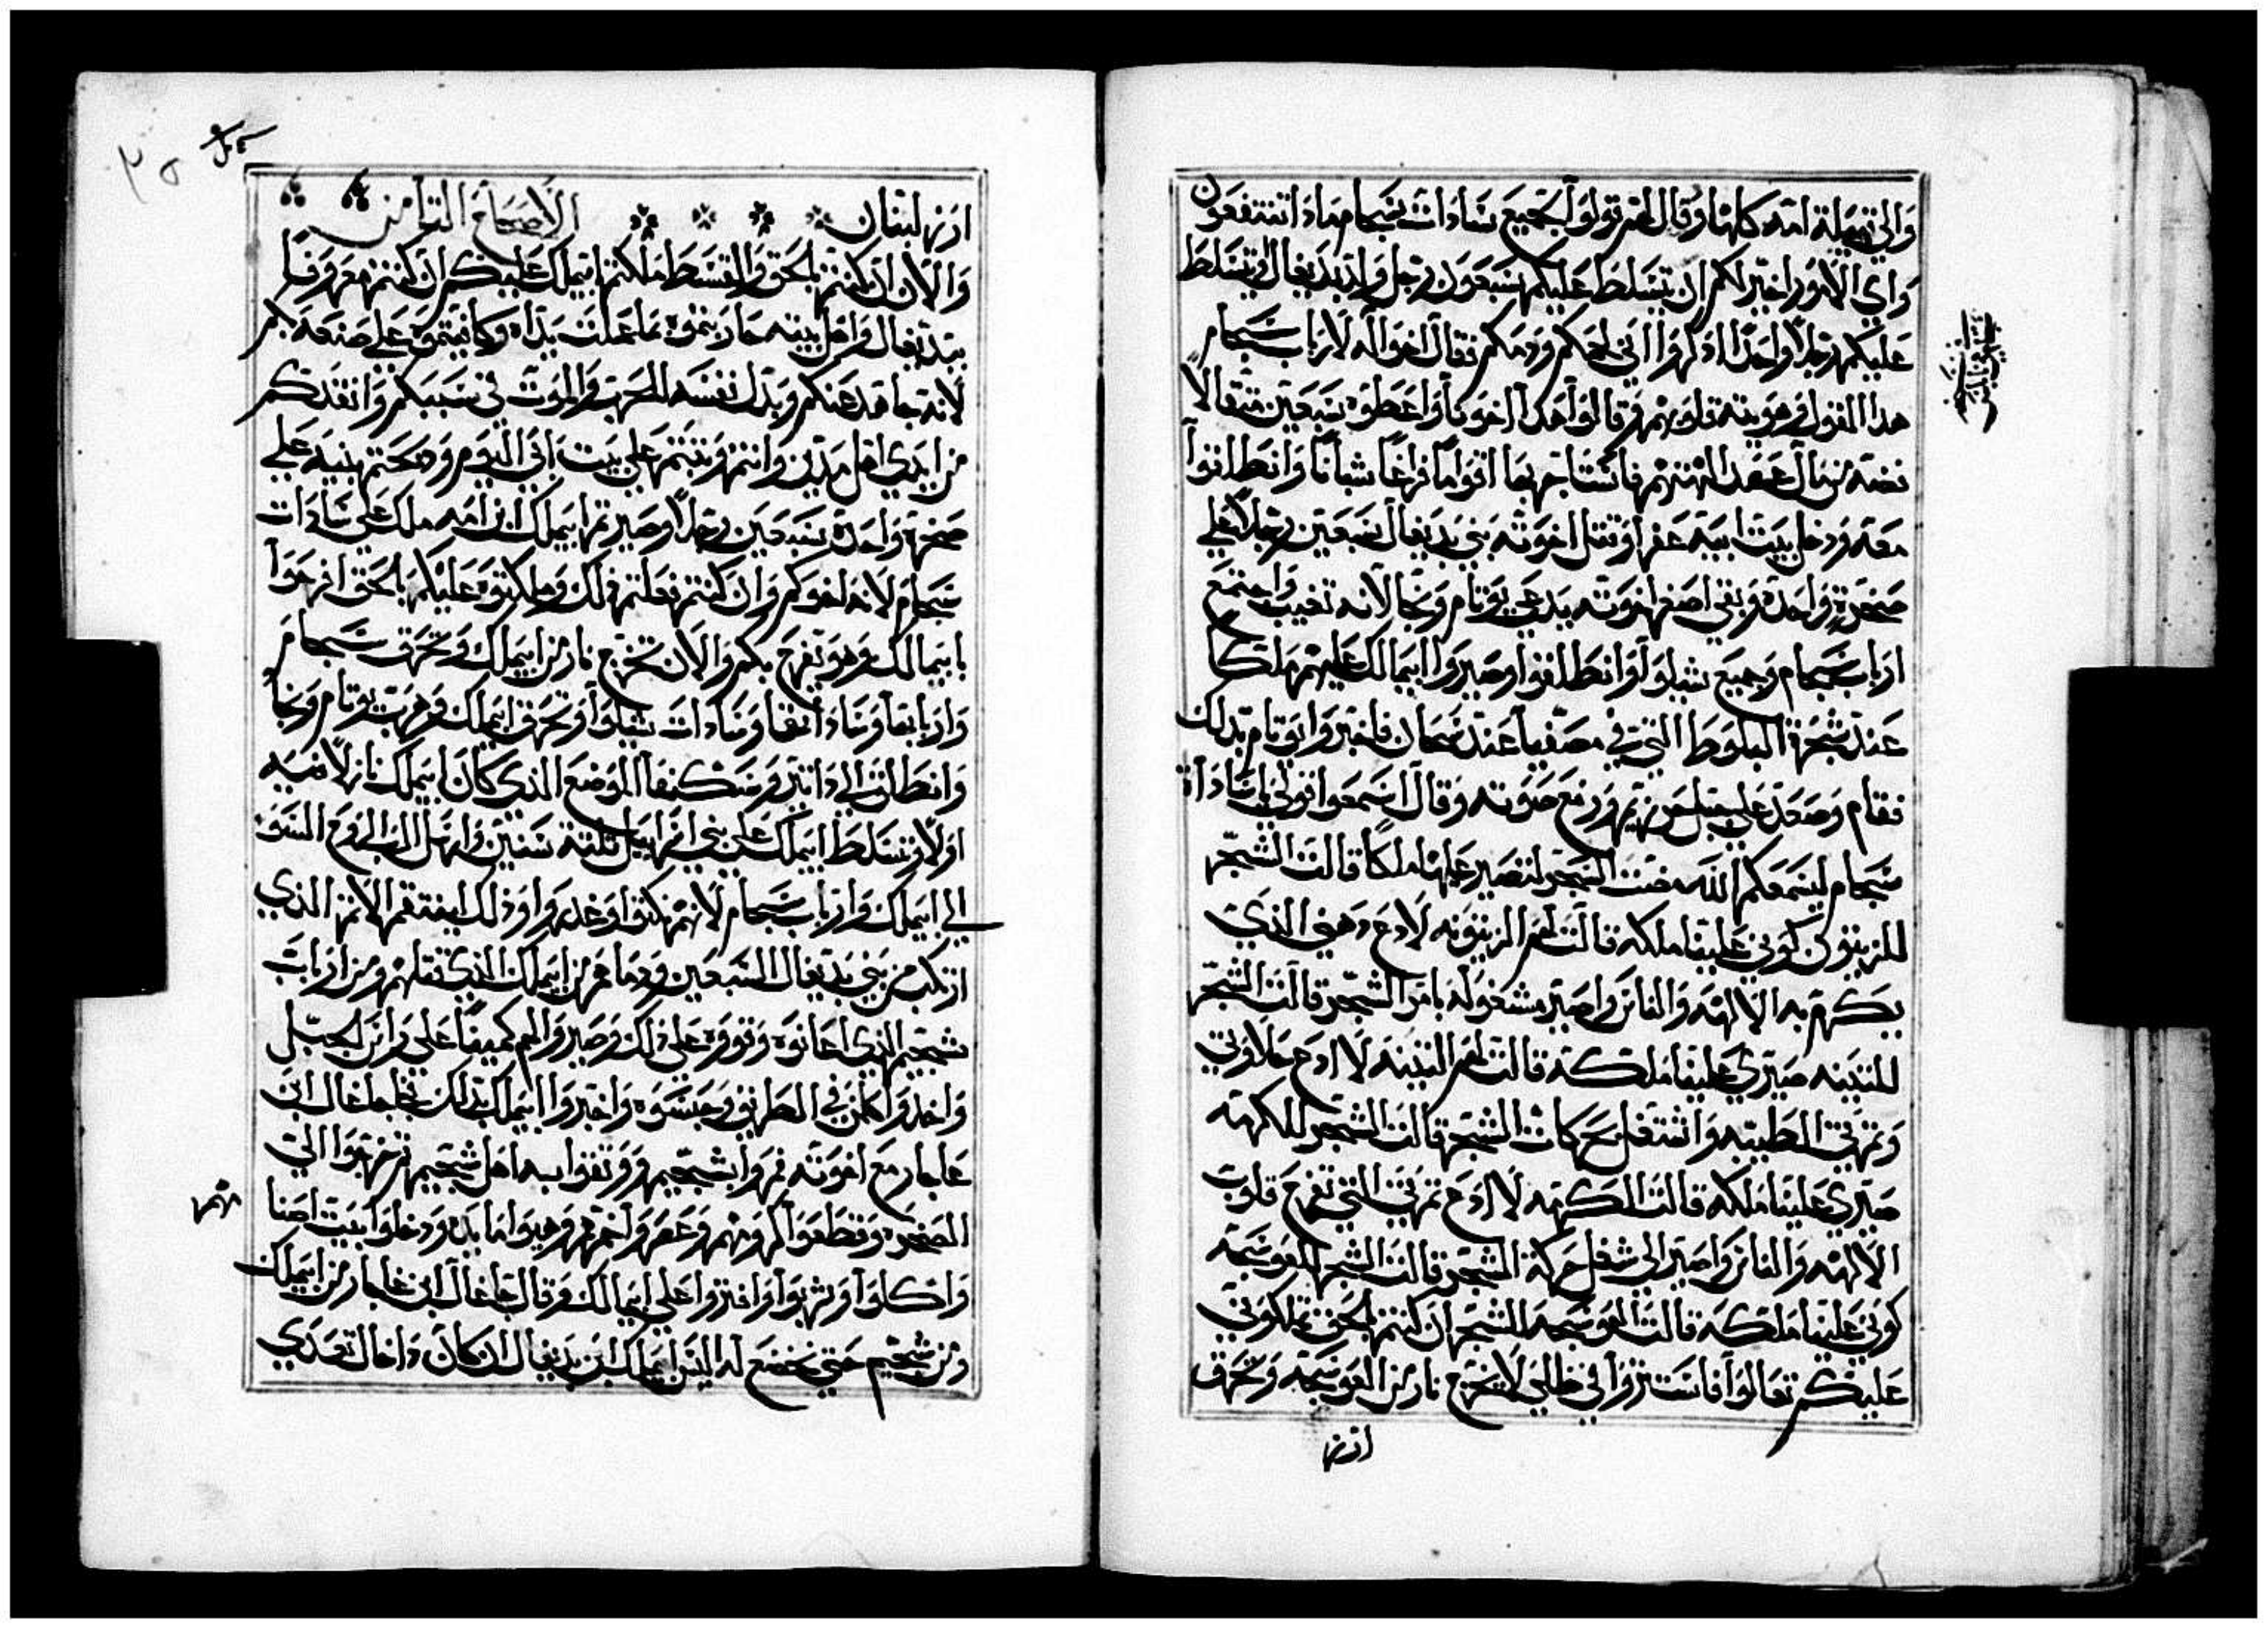 والى قبيلة امه كلها وقال لهم قولوا لجميع سادات سجام ماذا تنتفعون
واي الامور اخير لكم ان يتسلط عليكم سبعون رجل ولد يدبعال او يتسلط
عليكم رجلا واحدا اذكروا اني لحمكم ودمكم فقال اخواله لارباب سجام
هذا القول في هويته قلوبهم وقالوا هذا اخونا واعطوه سبعين مثقالا
فضه من مال عقد الهتهم فاستاجر بها اقواما فراغا شبانا وانطلقوا
معه ودخل بيت ابيه عفرا وقتل اخوته بني يدبعال سبعين رجلا على
صخرة واحدة وبقي اصغر اخوته يدعى يوتام ونجا لانه تغيب واجتمع
ارباب سجام وجميع شيلوا وانطلقوا وصيروا ابيمالك عليهم ملكا
عند شجرة البلوط التي في مصفيا عند سجان فاخبروا يوتام بذلك
فقام وصعد على جبل جرزيم ورفع صوته وقال اسمعوا قولي يا سادات
سجام ليسمعكم الله مضت الشجر لتصير عليها ملكا قالت الشجر
للزيتون كوني علينا ملكه قالت لهم الزيتونه لا ادع دهني الذي
يكرم به الالهه والناس واصير مشغوله بامر الشجر قالت الشجر
للتينه صيري علينا ملكة قالت لهم التينه لا ادع حلاوتي
وثمرتي الطيبه واشتغل بحركات الشجر قالت الشجر للكرمه
صيري علينا ملكه قالت الكرمه لا ادع ثمرتي التي تفرح قلوب
الالهه والناس واصير الى شغل حركة الشجر قالت الشجر للعوسجه
كوني علينا ملكة قالت العوسجه للشجر ان كنتم بالحق تملكوني
عليكم تعالوا فاستتروا في ظلي لا يخرج نار من العوسجه وتحرق
ارز
ارز لبنان الاصحاح الثامن
والان ان كنتم بالحق والقسط ملكتم ابيملك عليكم ان كنتم معروفا
بيدبعال واهل بيته جازيتموه بما عملت يداه وكافيتموه على صنعه بكم
لانه جاهد عنكم وبذل نفسه للحرب والموت في سببكم وانقذكم
من ايدي اهل مدين وانتم وثبتم على بيت ابي اليوم وذبحتم بنيه على
صخرة واحدة سبعين رجلا وصيرتم ابيملك ابن امه ملك على سادات
سجام لانه اخوكم وان كنتم فعلتم ذلك وملكتوه عليكم بالحق افرحوا
بابيمالك وهو يفرح بكم والان تخرج نار من ابيملك وتحرق سجام
واربابها وساداتها وسادات شيلوا وتحرق ابيملك وهرب يوتام ونجا
وانطلق الى داتير وسكنها الموضع الذي كان ابيملك نازلا فيه
اولا وتسلط ابيملك على بني اسرايل ثلثة سنين وارسل الرب روح السو
الى ابيملك وارباب سجام لانهم نكثوا وغدروا وذلك لينتقم الاثم الذي
ارتكب من بني يدبعال السبعين ودماهم من ابيملك الذي قتلهم ومن ارباب
شجيم الذي اعانوه وقووه على ذلك وصيروا لهم كمينا على راس الجبل
واخذوا كلمن في الطريق وحبسوه واخبروا ابيملك بذلك فجا جاعال ابن
عابار مع اخوته فمروا بشجيم ووثقوا به اهل شجيم ثم خرجوا الى
الصحرا وقطعوا كرومهم وعصروا خمرهم وهيوا مايده ودخلوا بيت اصنا
مهم
واكلوا وشربوا وافتروا على ابيمالك وقال جاعال ابن عابار من ابيملك
ومن شجيم حتى نخضع له اليس ابيملك ابن يدبعال